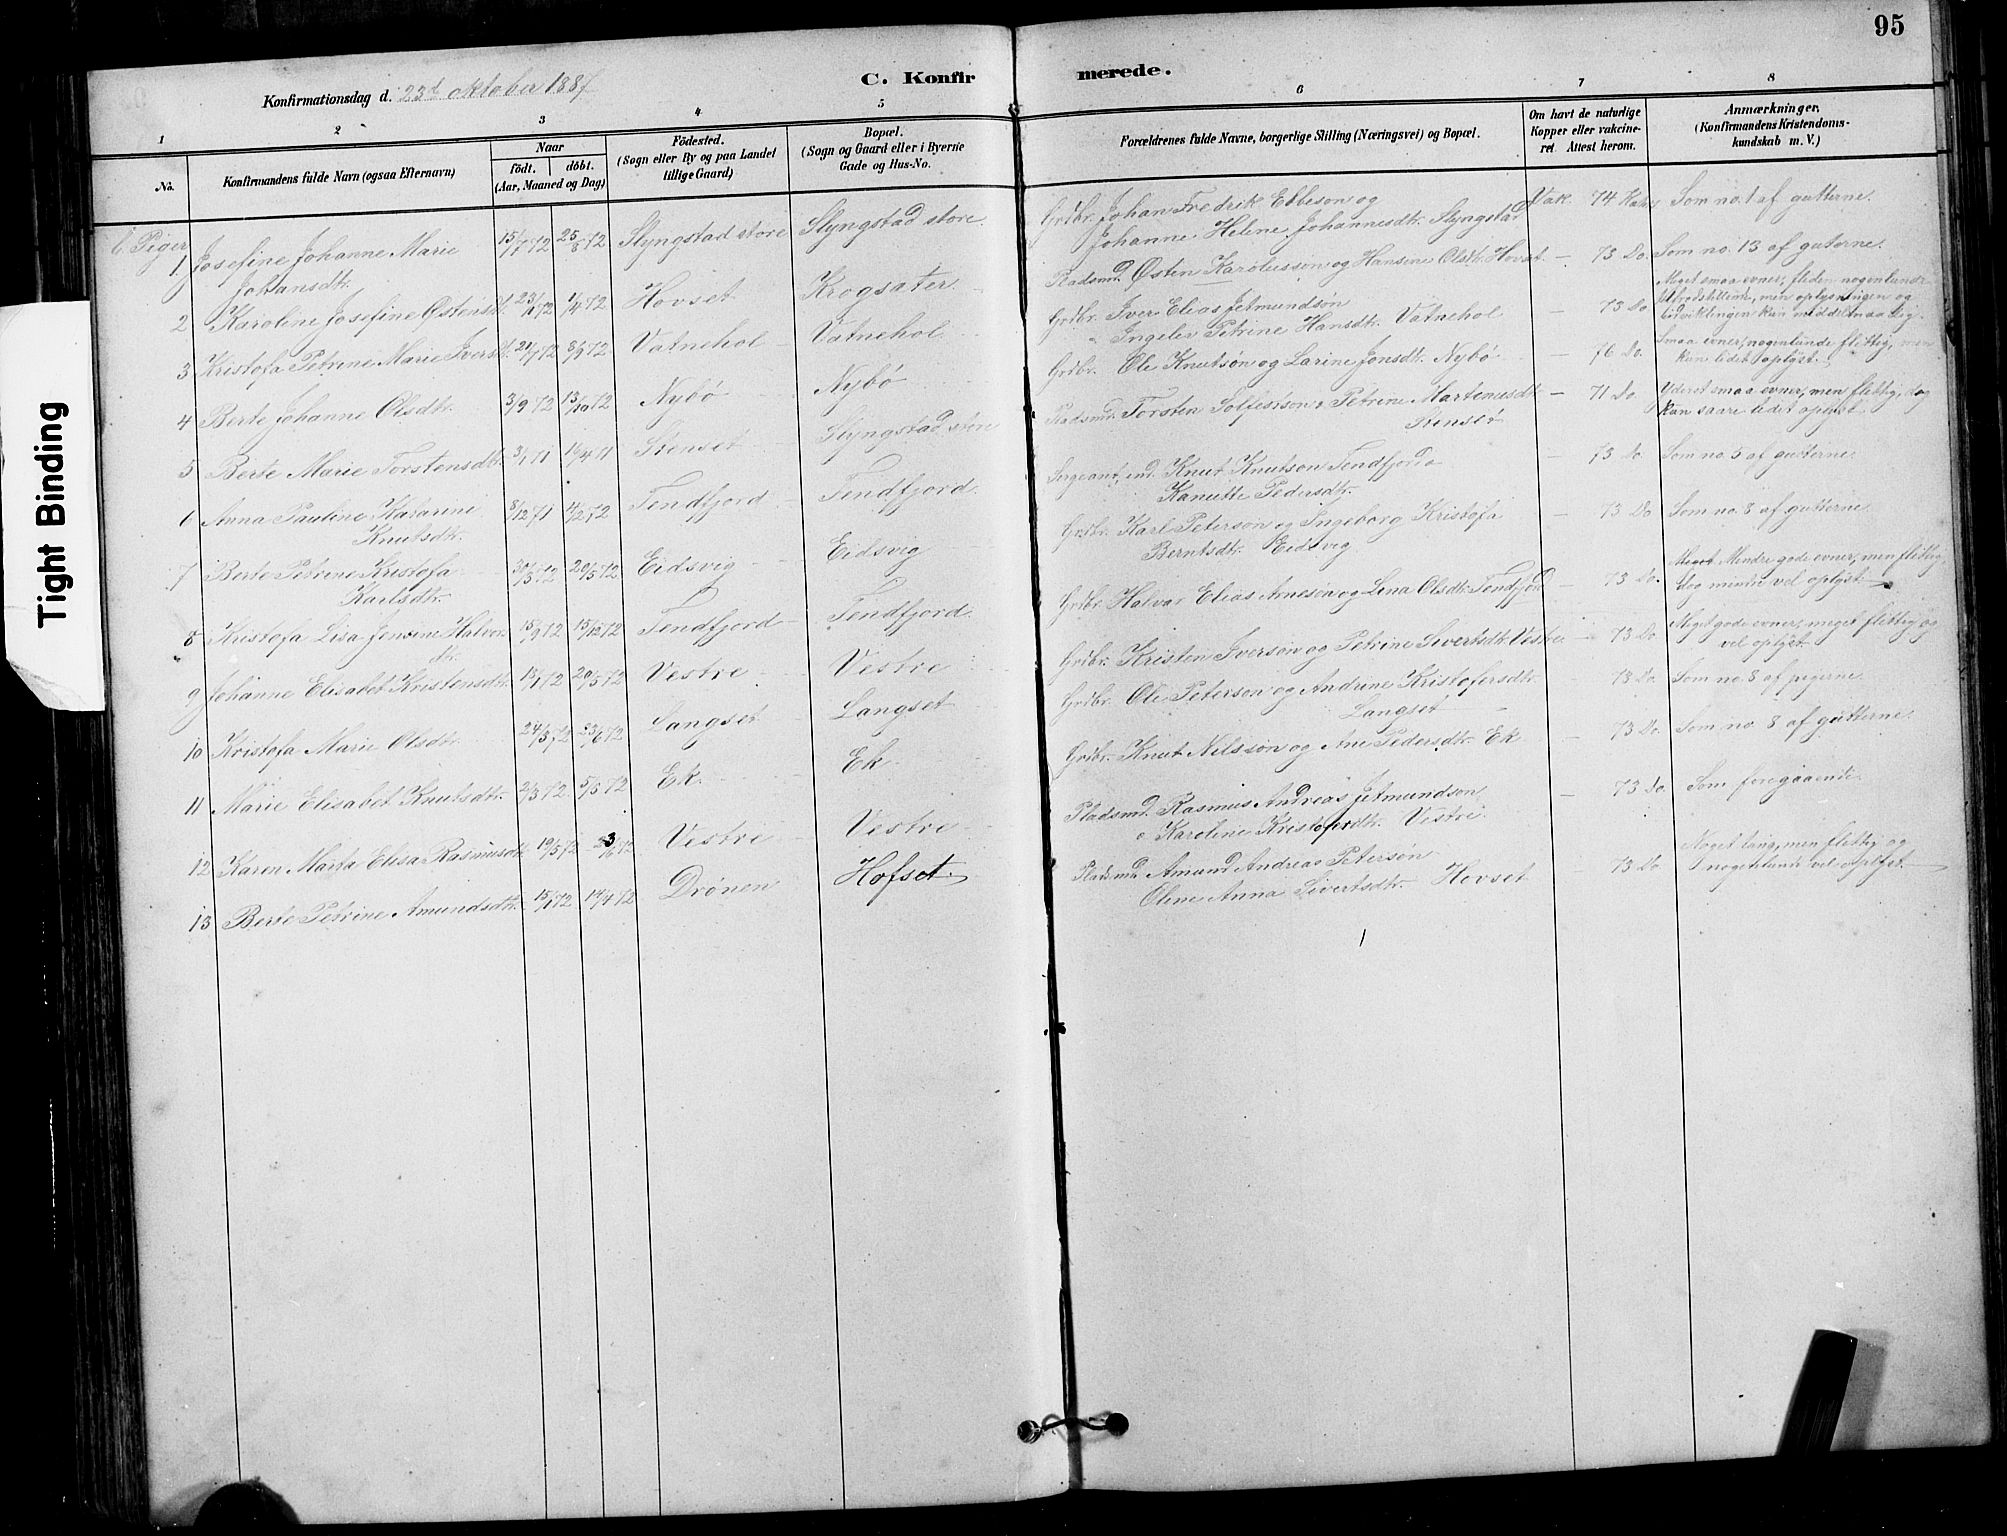 95
Tight Binding
C. Konfirmerede.
Konfirmationsdag d. 23de oktober 1887
1 2 3 4 5 6 7 8
No.
Konfirmandens fulde Navn (ogsaa Efternavn)
Naar
födt. döbt.
(Aar, Maaned og Dag)
Födested.
(Sogn eller By og paa Landet
tillige Gaard)
Bopæl.
(Sogn og Gaard eller i Byerne
Gade og Hus-No.
Forældrenes fulde Navne, borgerlige Stilling (Næringsvei) og Bopæl.
Om havt de naturlige
Kopper eller vakcine-
ret Attest herom.
Anmærkninger.
(Konfirmandens Kristendoms-
kundskab m. V.)
Piger
1 Josefine Johanne Marie 15/7 72 25/8 72 Slyngstad store Slyngstad store Grdbr. Johan Fredrik Ebbeson og Vak. 74 Som no. 1 af gutterne.
Johansdtr. Johanne Helene Johannesdtr. Slyngstad
2 Karoline Josefine Østensdt. 23/1 72 1/4 72 Hovset Krogsæter Pladsmd. Østen Karolusson og Hansine Olsdtr. Hovset – 73 Do. Som no. 13 af guterne.
3 Kristofa Petrine Marie Iversdt. 21/7 72 8/9 72 Vatnehol Vatnehol Grdbr. Iver Elias Jetmundsøn – 73 Do. Meget smaa evner, fliden nogenlunde
o Ingelev Petrine Hansdtr. Vatnehol tilfredstillende, men oplysningen og
udviklingen kun middelmaadig.
4 Berte Johanne Olsdtr. 3/9 72 13/10 72 Nybö Nybö Grdbr. Ole Knutsøn og Larine Jonsdt. Nybö – 76 Do. Smaa evner, nogenlunde flittig, men
kun lidet oplyst.
5 Berte Marie Torstensdt. 3/1 71 16/4 71 Stenset Slyngstad store Pladsmd. Torsten Solfestsøn o Petrine Martinusdt. – 71 Do. Yderst smaa evner, men flittig, dog
kun saare lidet oplyst.
6 Anna Pauline Katarine 8/12 71 4/2 72 Tendfjord Tendfjord Sergeant, Knut Knutson Tendfjord o – 73 Do. Som no. 5 af gutterne.
Knutsdtr. Kanutte Pedersdtr.
7 Berte Petrine Kristofa 30/3 72 20/5 72 Eidsvig Eidsvig Grdbr. Karl Peterson og Ingeborg Kristofa – 73 Do Som no. 8 af gutterne
Karlsdtr. Berntsdtr. Eidsvig
8 Kristofa Lisa Jensine Halvor 15/9 72 15/12 72 Tendfjord Tendfjord Grdbr. Halvar Elias Arnesøn og Lina Olsdtr. Tendfjord – 73 Do. Meget Mindre gode evner, men flittig,
dtr. dog mindre vel oplyst.
9 Johanne Elisabet Kristensdt. 13/1 72 20/5 72 Vestre Vestre Grdbr. Kristen Iversøn og Petrine Sivertsdtr. Vestre – 73 Do Meget gode evner, meget flittig og
vel oplyst.
10 Kristofa Marie Olsdtr. 24/3 72 23/6 72 Langset Langset Grdbr. Ole Peterson og Andrine Kristofersdtr. – 73 Do. Som no. 8 af pigerne.
Langset
11 Marie Elisabet Knutsdtr. 2/3 72 5/5 72 Ek Ek Grdbr. Knut Nilsson og Ane Pedersdtr. Ek – 73 Do. Som no. 8 af gutterne.
12 Karen Marta Elisa Rasmusdt. 19/5 72 23/6 72 Vestre Vestre Pladsmd. Rasmus Andreas Jetmundson – 73 Do. Som foregaaende.
o Karoline Kristoferdtr. Vestre
13 Berte Petrine Amundsdtr. 15/1 72 14/4 72 Drönen Hofset. Pladsmd. Amund Andreas Petersøn 73 Do Noget lang, men flittig og
Oline Anna Sivertsdtr. Hovset nogenlunde vel oplyst